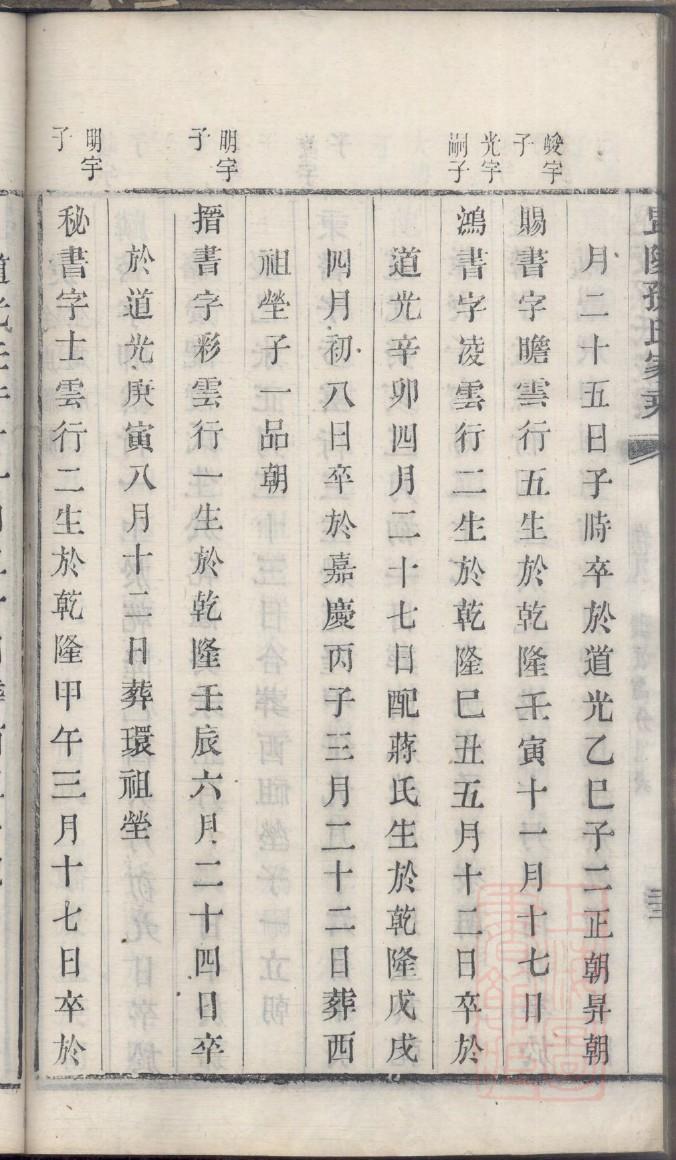 月二十五日子時卒於道光乙巳子二正朝昇朝
峻字
子
賜書字瞻雲行五生於乾隆壬寅十一月十七日
光字
嗣子
鴻書字凌雲行二生於乾隆巳丑五月十二日卒於
道光辛卯四月二十七日配蔣氏生於乾隆戊戌
四月初八日卒於嘉慶丙子三月二十二日葬西
祖塋子一品朝
明字
子
搢書字彩雲行一生於乾隆壬辰六月二十四日卒
於道光庚寅八月十二日葬環祖塋
明字
子
秘書字士雲行二生於乾隆甲午三月十七日卒於